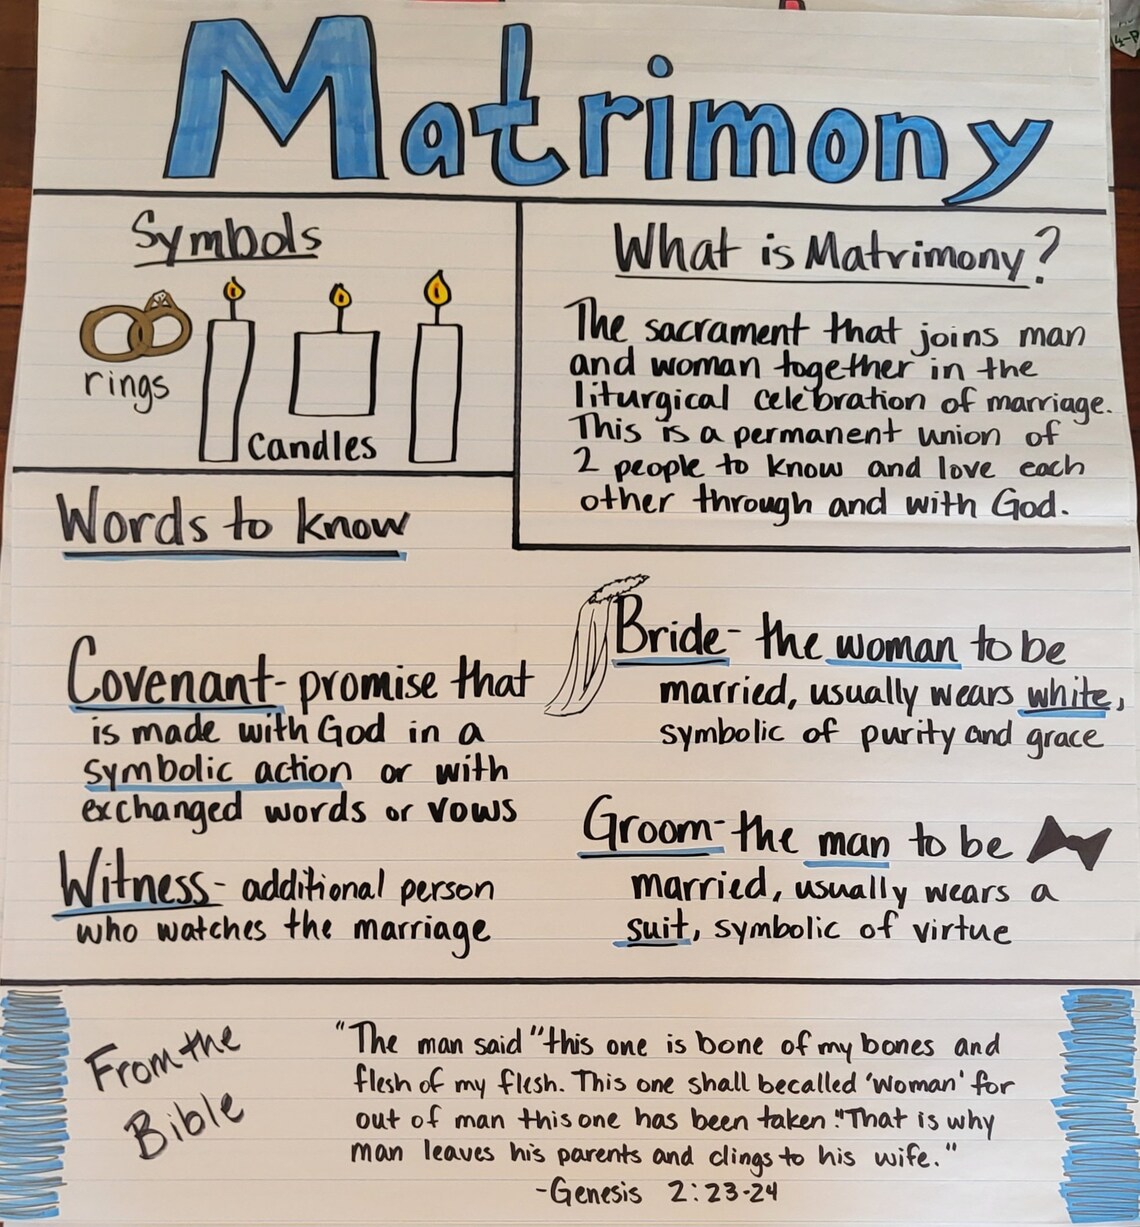 Matrimony
Symbols
rings
Candles
What is Matrimony?
The sacrament that joins man
and woman together in the
liturgical celebration of marriage.
This is a permanent union of
2 people to know and love each
other through and with God.
Words to know
Covenant- promise that
is made with God in a
symbolic action or with
exchanged words or vows
Witness- additional person
who watches the marriage
Bride- the woman to be
married, usually wears white,
symbolic of purity and grace
Groom- the man to be
married, usually wears a
suit, symbolic of virtue
From the
Bible
"The man said "this one is bone of my bones and
flesh of my flesh. This one shall becalled 'woman' for
out of man this one has been taken." That is why
man leaves his parents and clings to his wife."
-Genesis 2:23-24